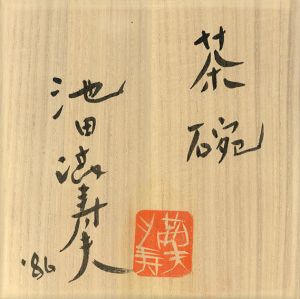 茶碗
池田満寿夫
'86